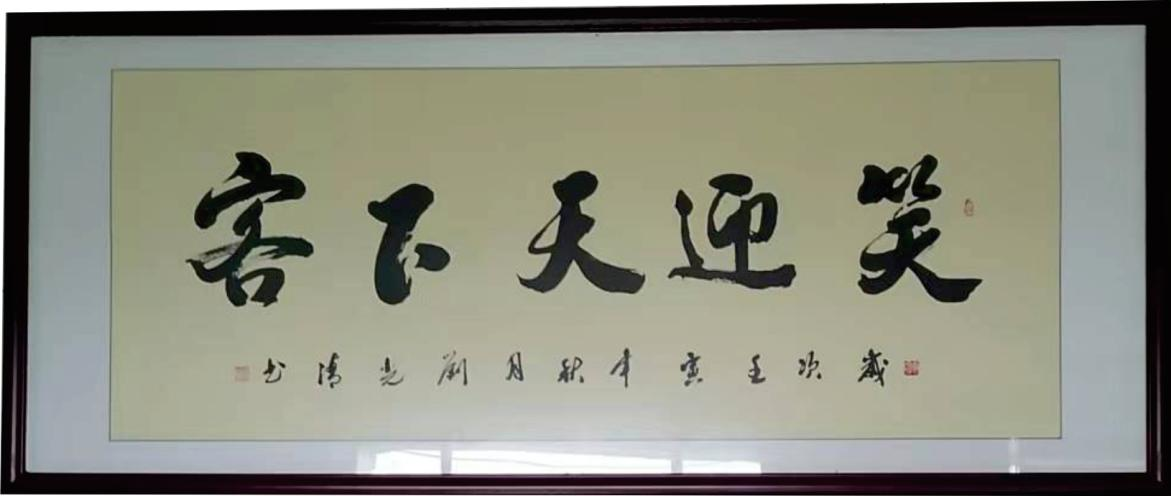 笑迎天下客
岁次壬寅年秋月刘光清书